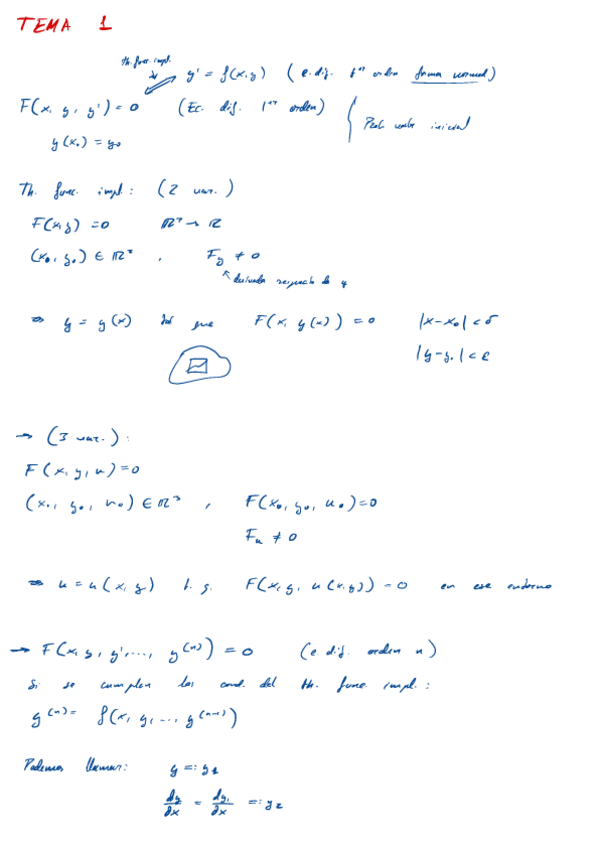 TEMA 1
th. func. impl.
y' = f(x,y) (e. dif. 1er orden forma normal)
F(x, y, y') = 0 (Ec. dif. 1er orden)
y(x₀) = y₀
Prob. valor inicial
Th. func. impl.: (2 var.)
F(x,y) = 0 ℝ² → ℝ
(x₀, y₀) ∈ ℝ², F_y ≠ 0
derivada respecto de y
⇒ y = y(x) tal que F(x, y(x)) = 0 |x-x₀| < δ
|y-y₀| < ε
→ (3 var.):
F(x, y, u) = 0
(x₀, y₀, u₀) ∈ ℝ³, F(x₀, y₀, u₀) = 0
F_u ≠ 0
⇒ u = u(x, y) t. q. F(x, y, u(x,y)) = 0 en ese entorno
→ F(x, y, y', ..., y⁽ⁿ⁾) = 0 (e. dif. orden n)
Si se cumplen las cond. del th. func. impl.:
y⁽ⁿ⁾ = f(x, y, ..., y⁽ⁿ⁻¹⁾)
Podemos llamar: y =: y₁
dy/dx = dy₁/dx =: y₂